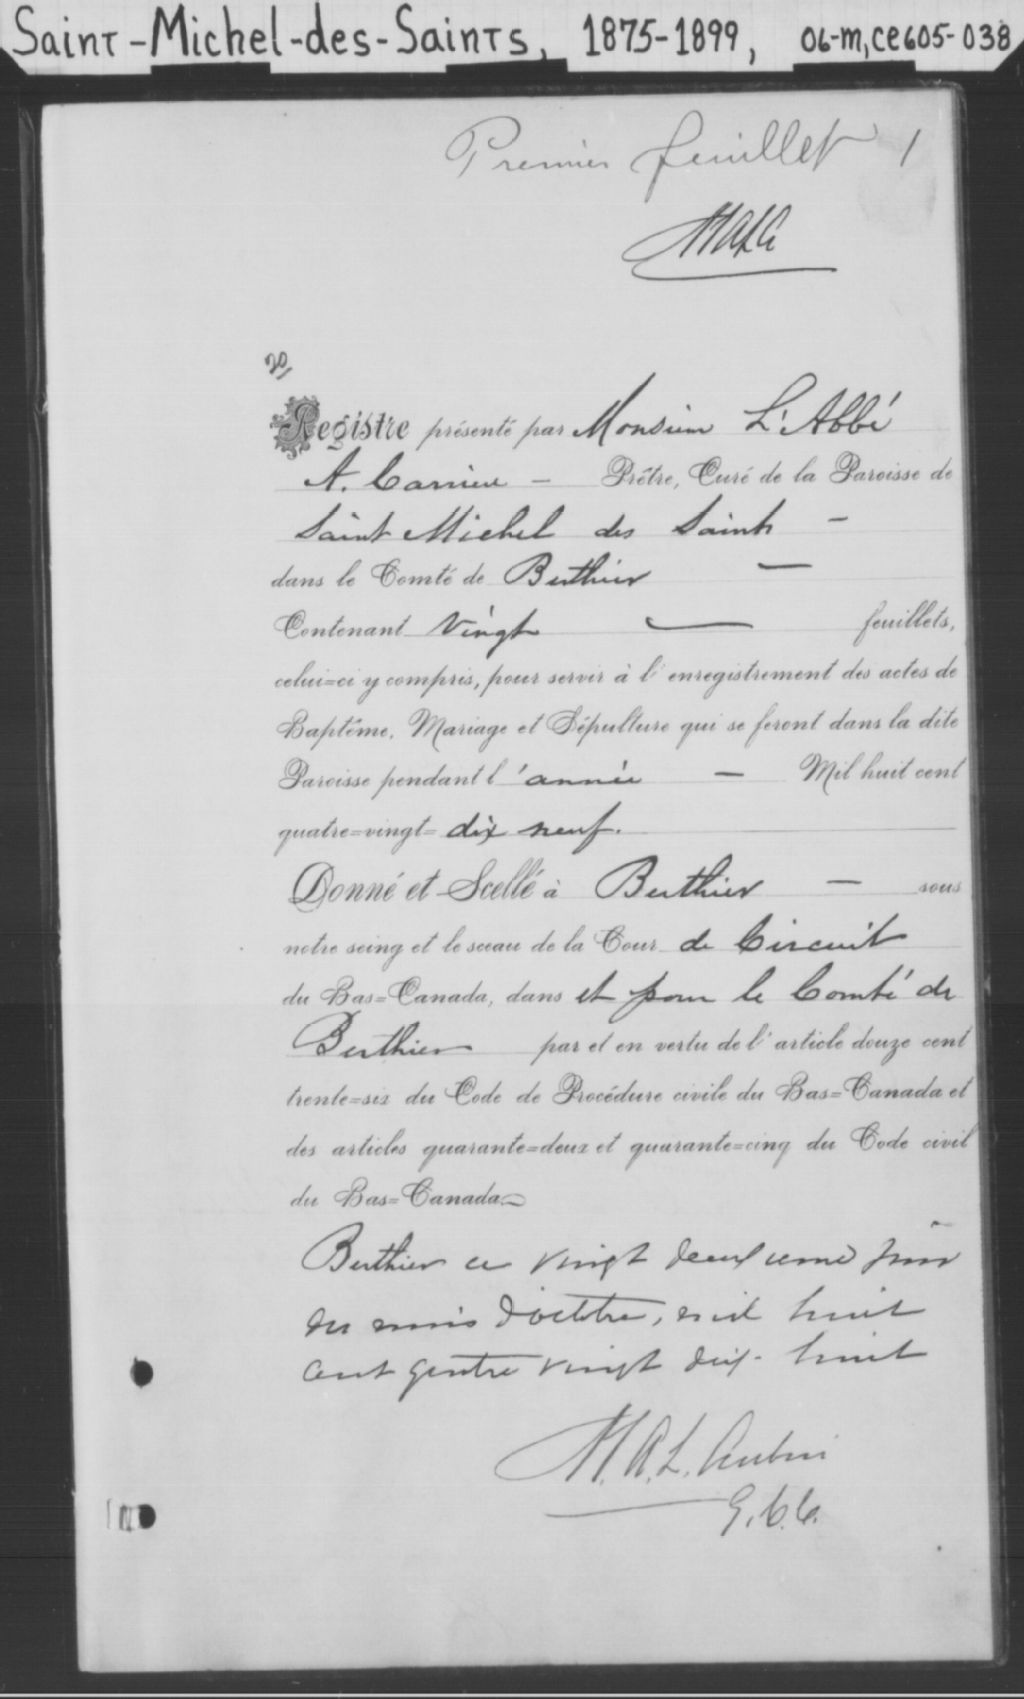 Saint-Michel-des-Saints, 1875-1899, 06-m, ce605-038
Premier feuillet 1
MALA
20
Registre présenté par Monsieur L'Abbé
A. Carrière - Prêtre, Curé de la Paroisse de
Saint Michel des Saints -
dans le Comté de Berthier -
Contenant Vingt - feuillets,
celui=ci y compris, pour servir à l'enregistrement des actes de
Baptême, Mariage et Sépulture qui se feront dans la dite
Paroisse pendant l'année - Mil huit cent
quatre=vingt= dix neuf.
Donné et Scellé à Berthier - sous
notre seing et le sceau de la Cour de Circuit
du Bas=Canada, dans et pour le Comté de
Berthier par et en vertu de l'article douze cent
trente=six du Code de Procédure civile du Bas=Canada et
des articles quarante=deux et quarante=cinq du Code civil
du Bas=Canada
Berthier ce vingt deuxieme jour
du mois d'octobre, mil huit
cent quatre vingt dix-huit
M. A. L. Aubin
G. C. C.